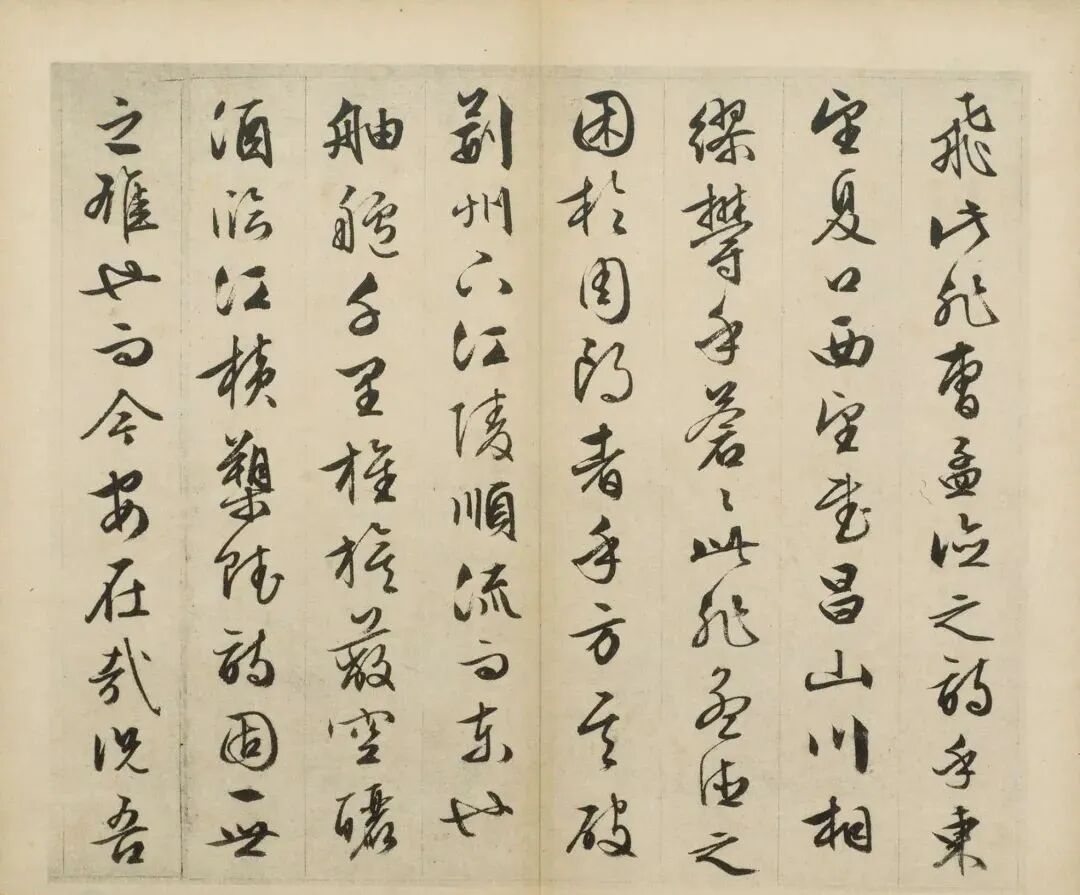 飛此非曹孟德之詩乎東
望夏口西望武昌山川相
繆鬱乎蒼〻此非孟德之
困於周郎者乎方其破
荆州下江陵順流而東也
舳艫千里旌旗蔽空釃
酒臨江横槊賦詩固一世
之雄也而今安在哉況吾